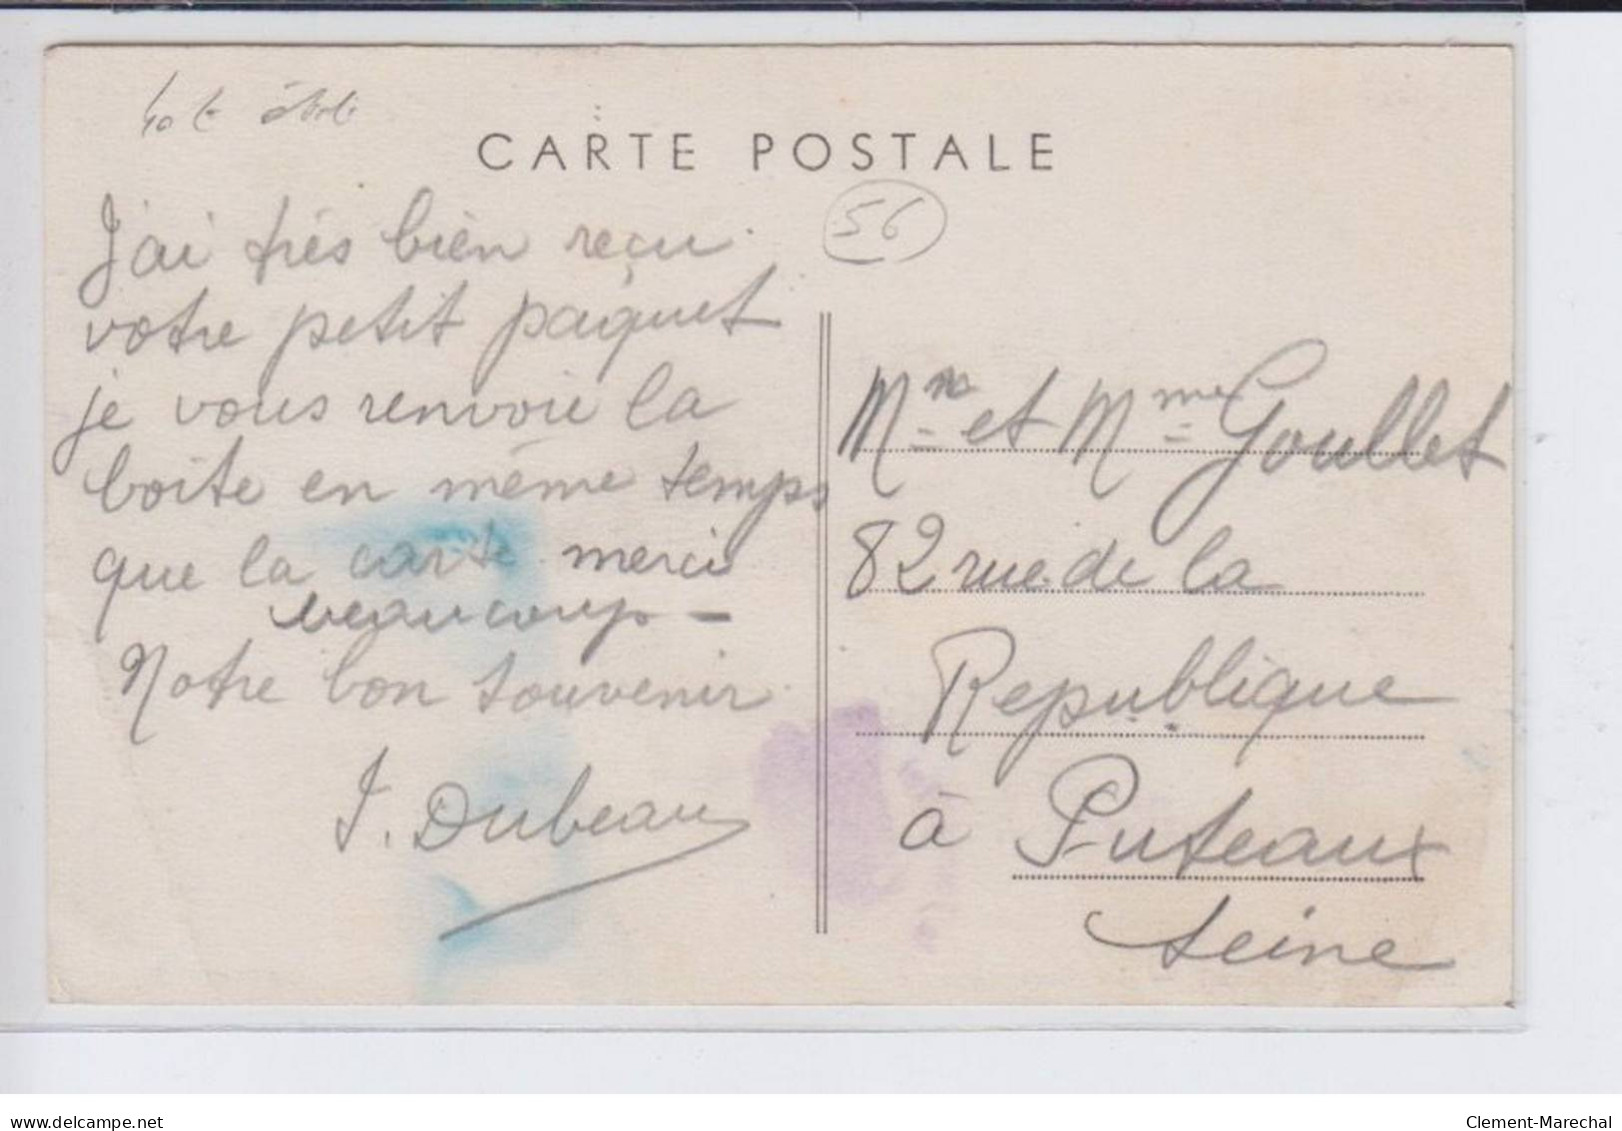 CARTE POSTALE
56
J'ai très bien reçu
votre petit paquet
je vous renvoie la
boîte en même temps
que la carte merci
beaucoup —
Notre bon souvenir
J. Dubeau
Mr et Mme Goullet
82 rue de la
Republique
à Puteaux
Seine
www.delcampe.net
Clement-Marechal